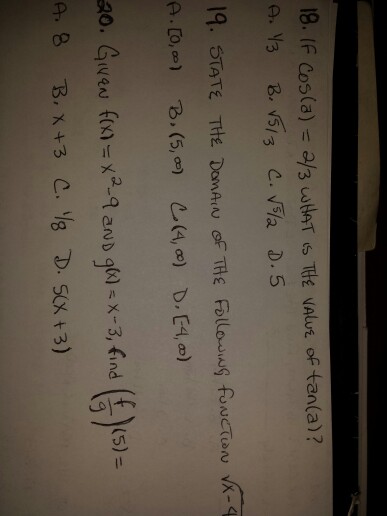 18. IF Cos(a) = 2/3 WHAT IS THE VALUE of tan(a)?
A. 1/3 B. √5/3 C. √5/2 D. 5
19. STATE THE DOMAIN OF THE Following function √x-4
A. [0,∞) B. (5,∞) C. (4,∞) D. [-4,∞)
20. GIVEN f(x) = x²-9 AND g(x) = x-3, find (f/g)(5) =
A. 8 B. x+3 C. 1/8 D. 5(x+3)